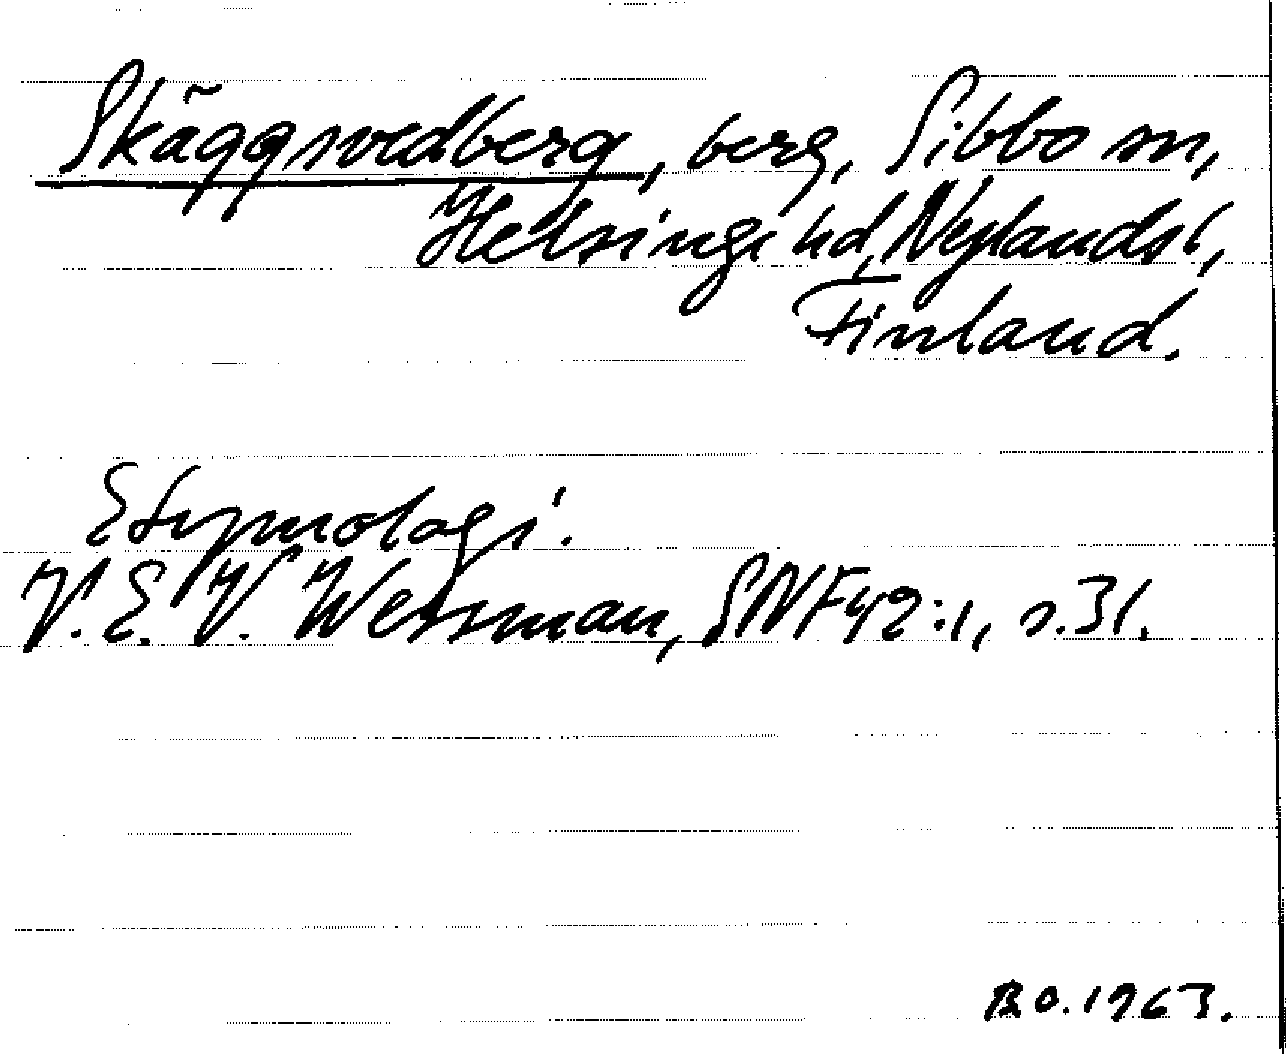 Skäggsvedberg, berg, Sibbo sn,
Helsinge hd, Nylands l,
Finland.
Etymologi.
V. E. V. Wessman, SNF 42:1, s. 31.
B. O. 1963.